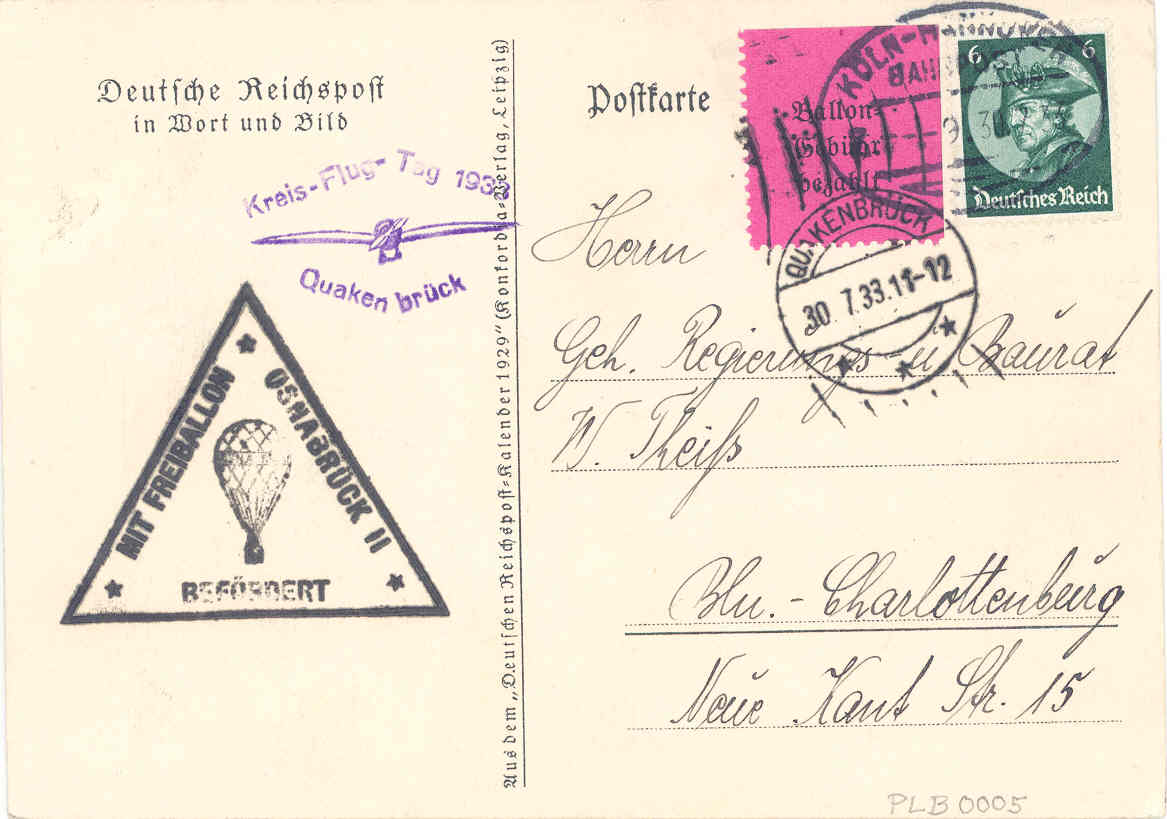 Deutsche Reichspost
in Wort und Bild
Kreis-Flug-Tag 1933
Quakenbrück
MIT FREIBALLON
OSNABRÜCK II
BEFÖRDERT
Aus dem „Deutschen Reichspost-Kalender 1929“ (Konkordia-Verlag, Leipzig)
Postkarte
Ballon-
Gebühr
bezahlt
KÖLN-HANNOVER
BAHNPOST
6 6
Deutsches Reich
QUAKENBRÜCK
30.7.33.11-12
Herrn
Geh. Regierungs- u. Baurat
W. Theiß
Bln.-Charlottenburg
Neue Kant Str. 15
PLB 0005